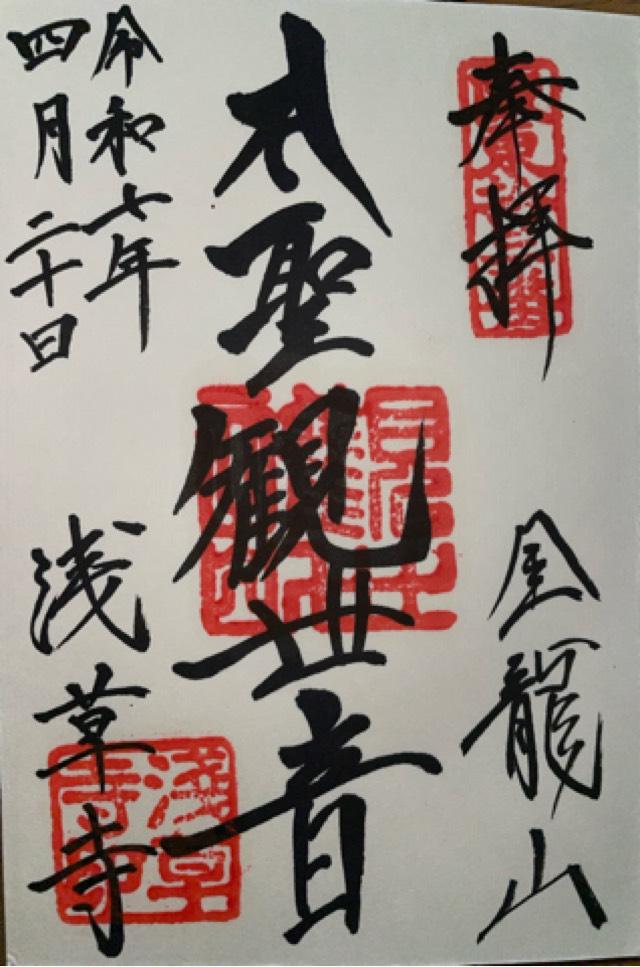 奉拝
金龍山
大聖観世音
令和七年
四月二十日
浅草寺